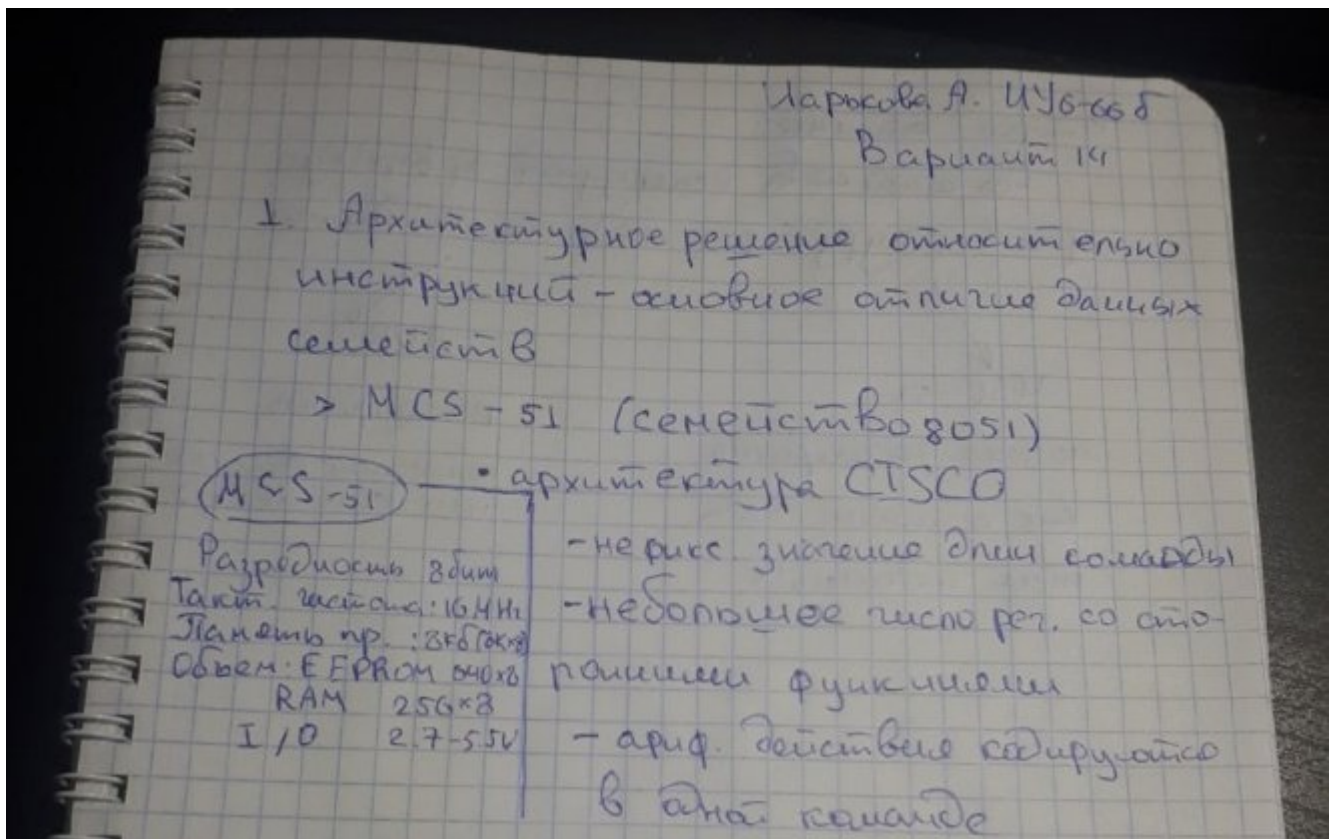 Царькова А. ИУ6-66б
Вариант 14
1. Архитектурное решение относительно
инструкций - основное отличие данных
семейств
> MCS-51 (семейство 8051)
MCS-51
• архитектура CISCO
Разрядность 8 бит
Такт. частота: 16 MHz
Память пр.: 8кб
Объем: EEPROM
RAM 256×8
I/O 2.7-5.5V
- не фикс значение длин команды
- небольшое число рег. со сто-
ронними функциями
- ариф. действия кодируются
в одной команде